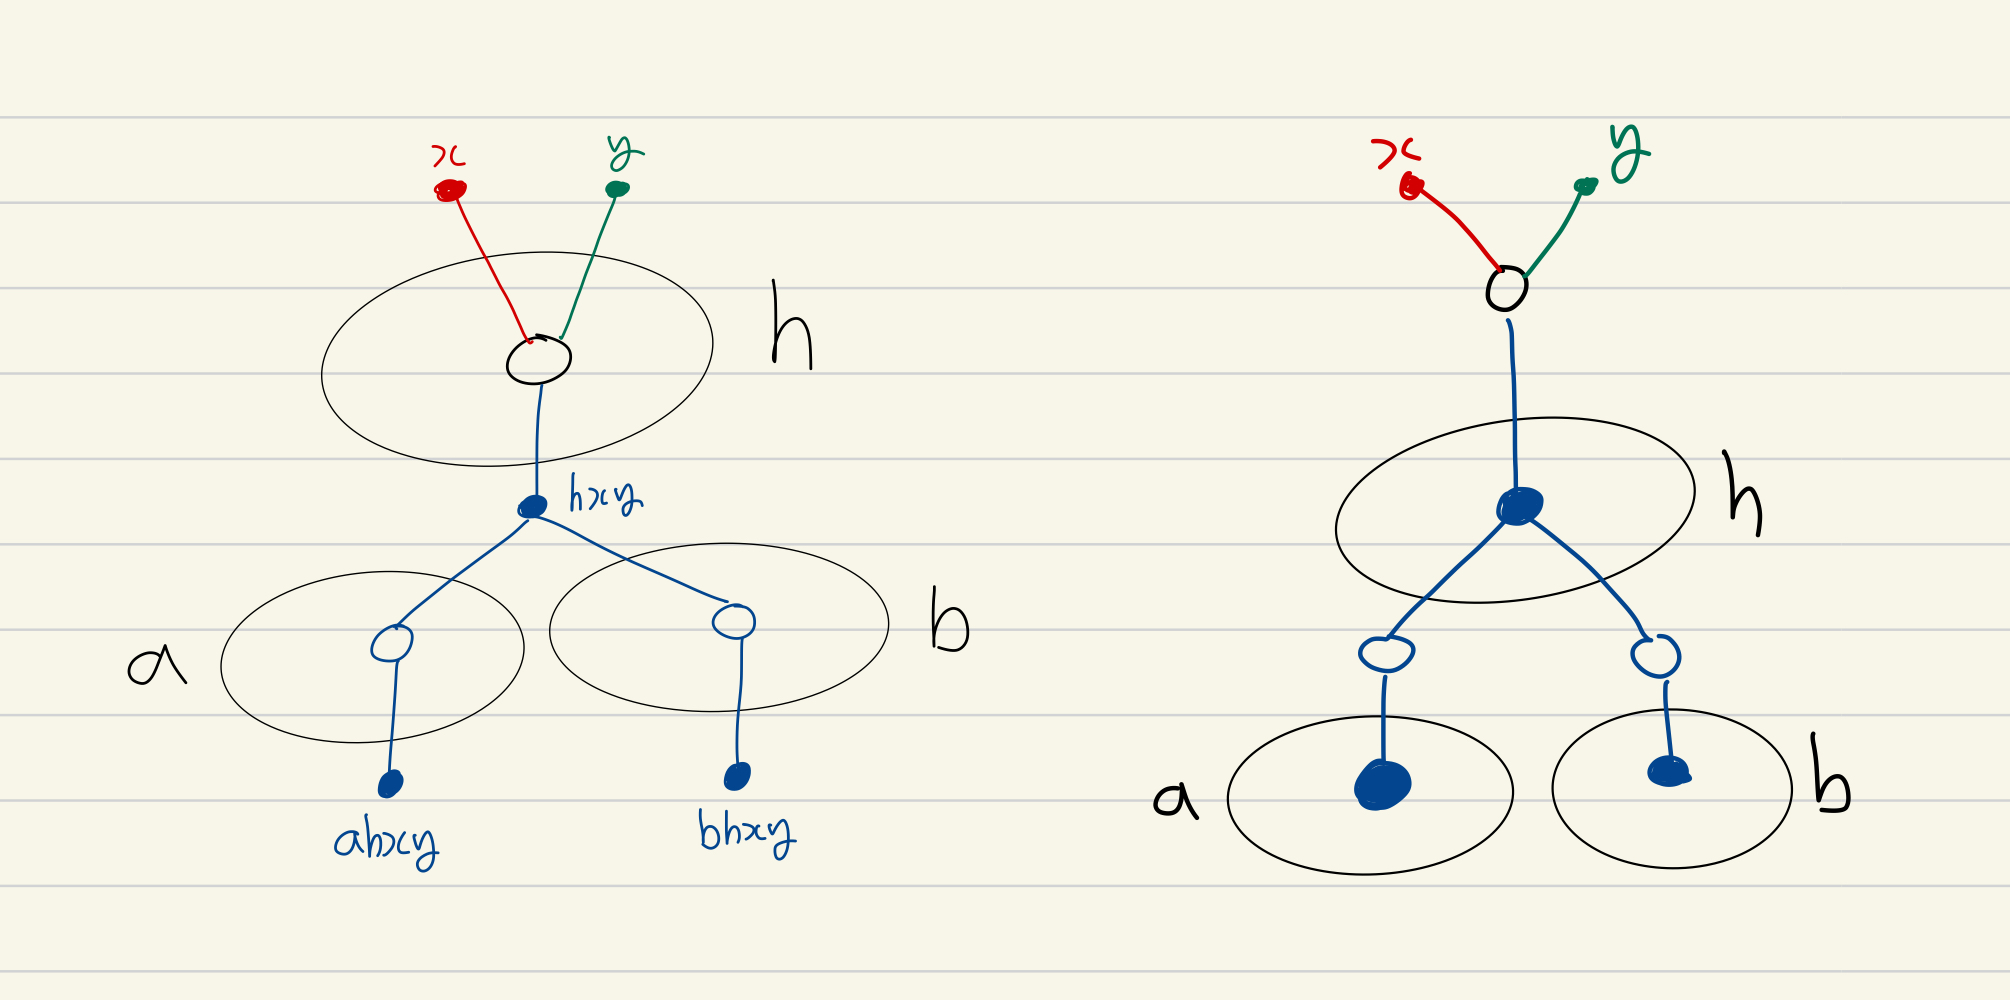 x y
h
hxy
a b
ahxy bhxy
x y
h
a b